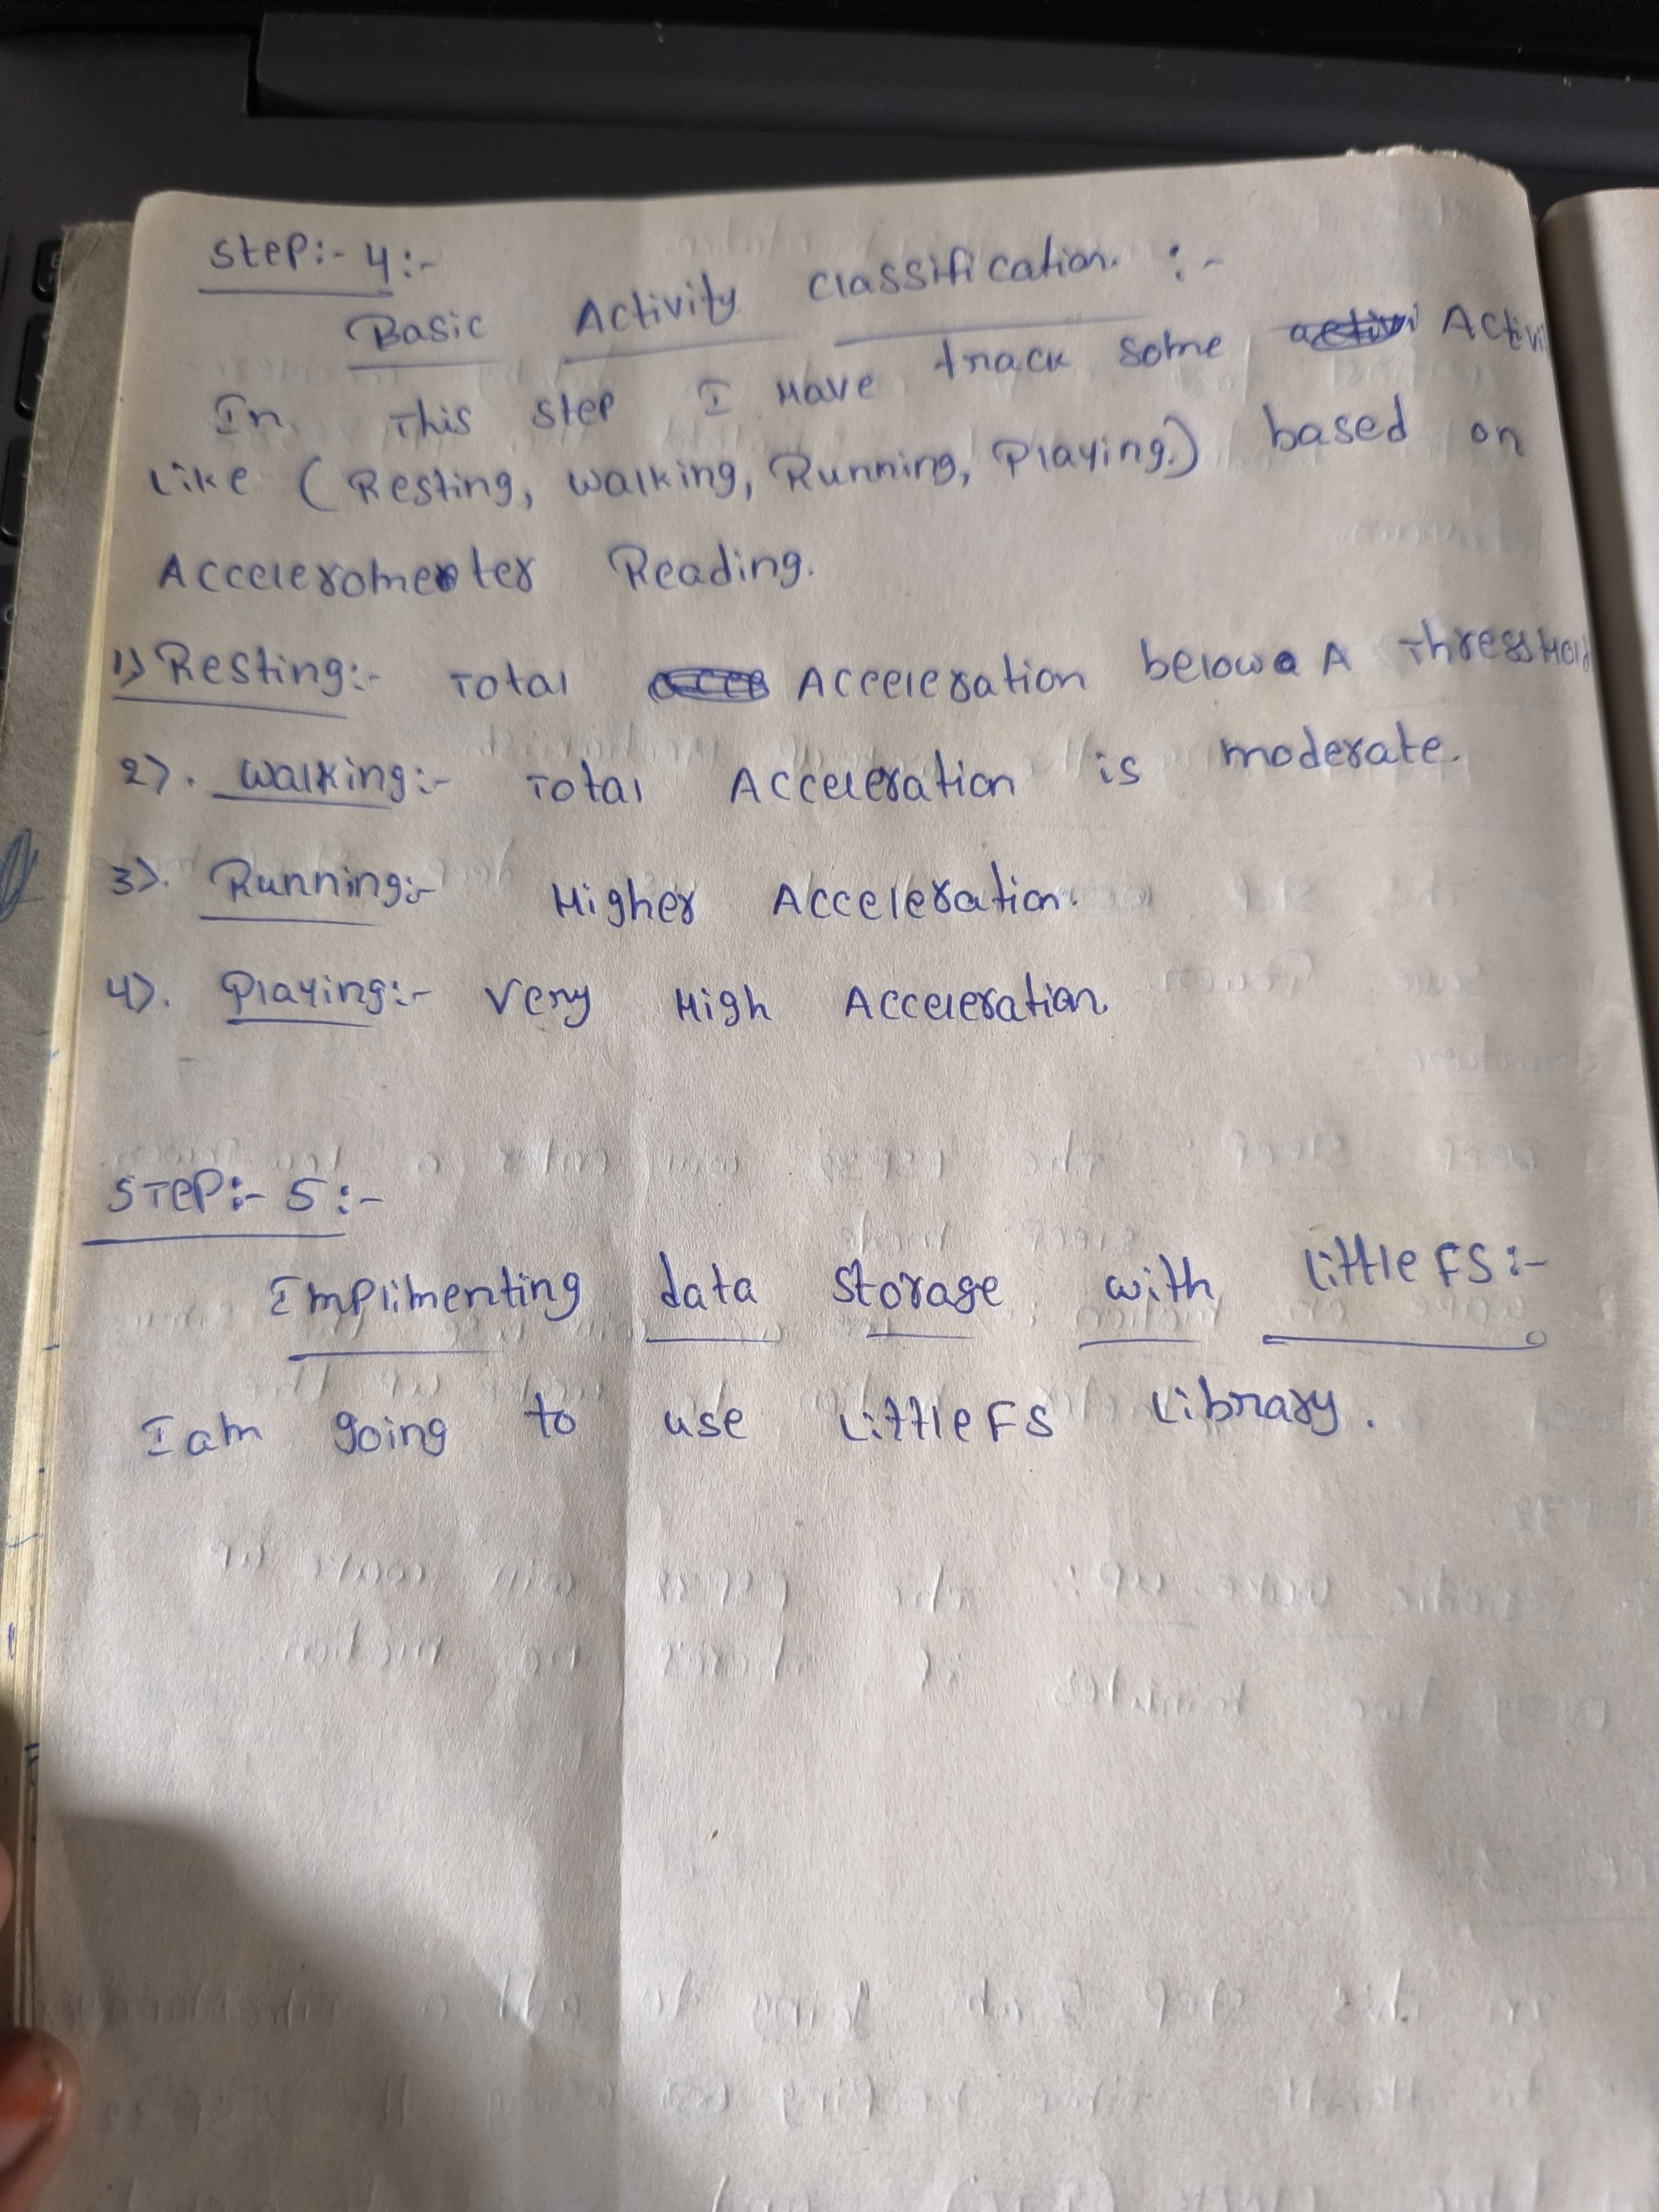 Step:- 4:-
Basic Activity Classification. :-
In This Step I Have track some Activi
Like (Resting, Walking, Running, Playing.) based on
Accelerometer Reading.
1) Resting:- Total Acceleration below A Threshold
2). Walking:- Total Acceleration is moderate.
3). Running:- Higher Acceleration.
4). Playing:- Very High Acceleration.
STEP:- 5:-
Implimenting data Storage with LittleFS:-
I am going to use LittleFS Library.